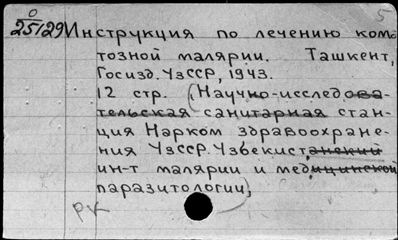 5
0
25129 Инструкция по лечению кома-
тозной малярии. Ташкент,
Госизд. УзССР, 1943.
12 стр. (Научно-исследова-
тельская санитарная стан-
ция Нарком здравоохране-
ния УзССР. Узбекистанский
ин-т малярии и медицинской
паразитологии)
РК